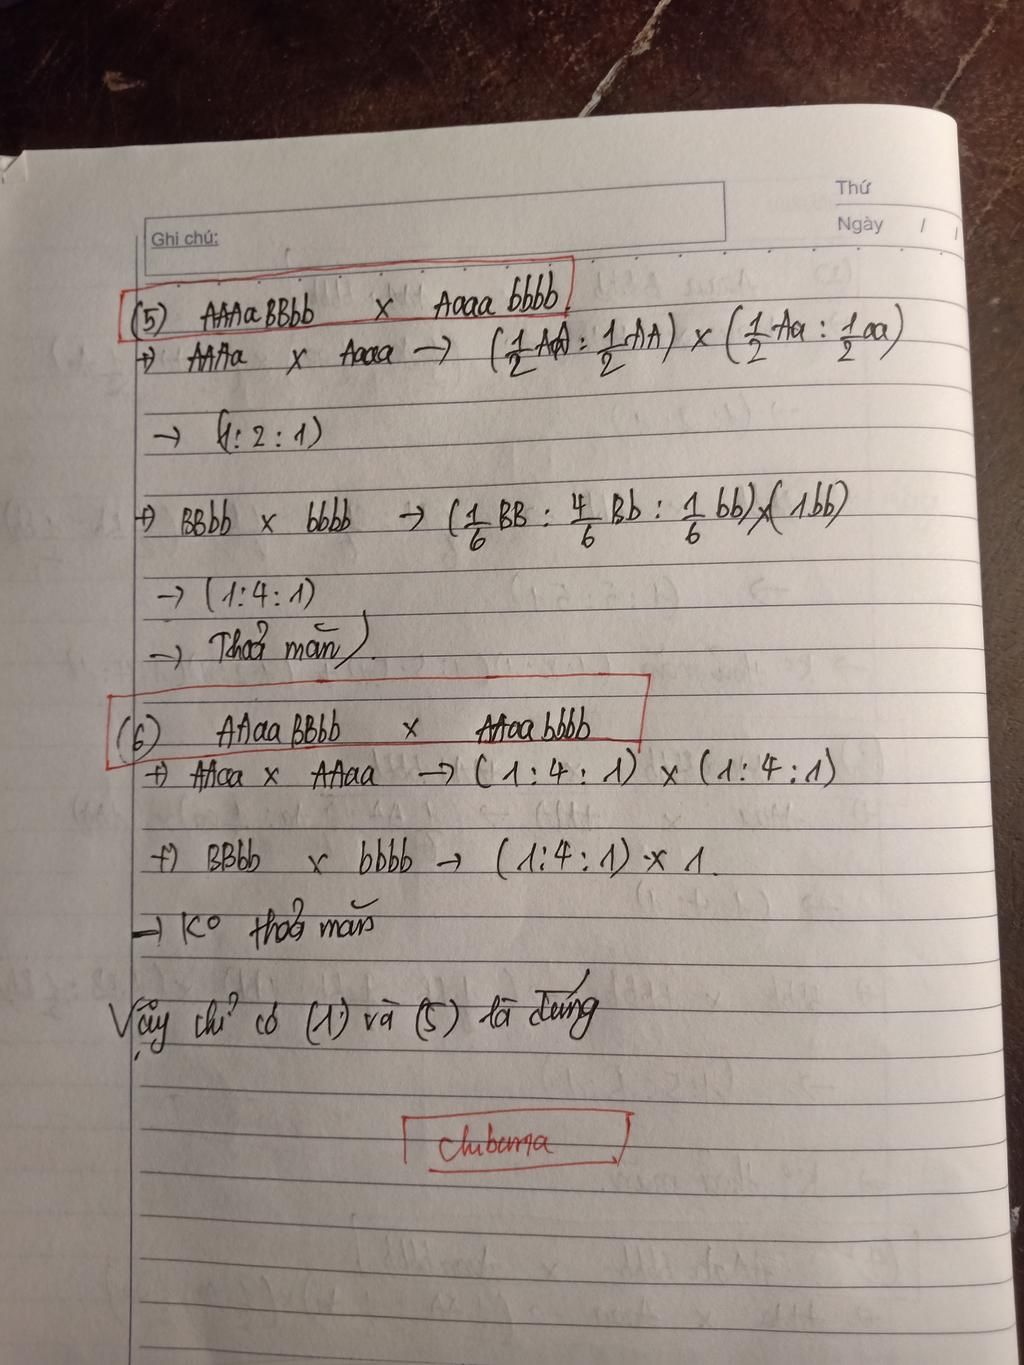 Thứ
Ghi chú:
Ngày / /
(5) AAAaBBbb x Aaaabbbb
+) AAAa x Aaaa → (1/2 AA : 1/2 AA) x (1/2 Aa : 1/2 aa)
→ (1:2:1)
+) BBbb x bbbb → (1/6 BB : 4/6 Bb : 1/6 bb) x (1bb)
→ (1:4:1)
→ Thoả mãn)
(6) AAaaBBbb x AAaabbbb
+) AAaa x AAaa → (1:4:1) x (1:4:1)
+) BBbb x bbbb → (1:4:1) x 1.
→ Ko thoả mãn
Vậy chỉ có (1) và (5) là đúng